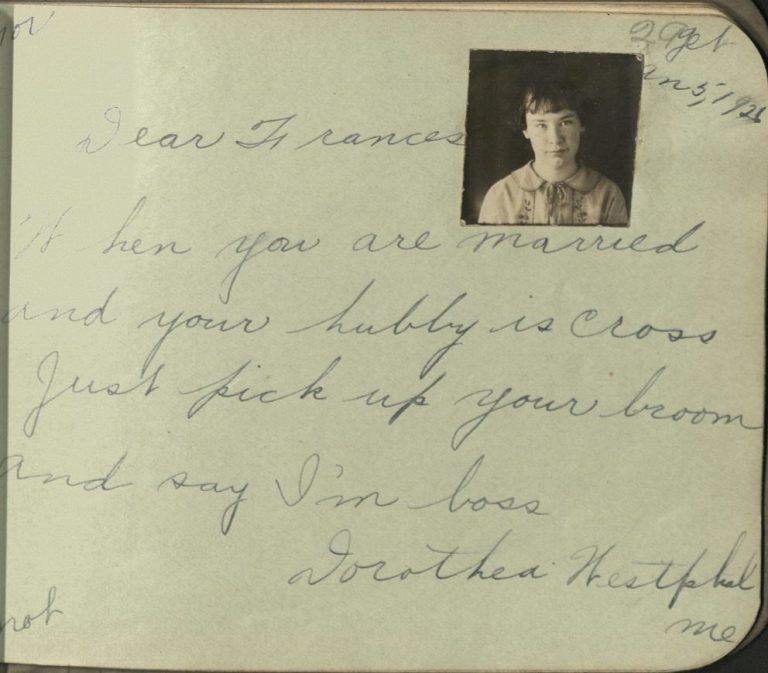 for
get
an 5, 1926
Dear Frances
When you are married
and your hubby is cross
Just pick up your broom
and say I'm boss
Dorothea Westphal
not
me